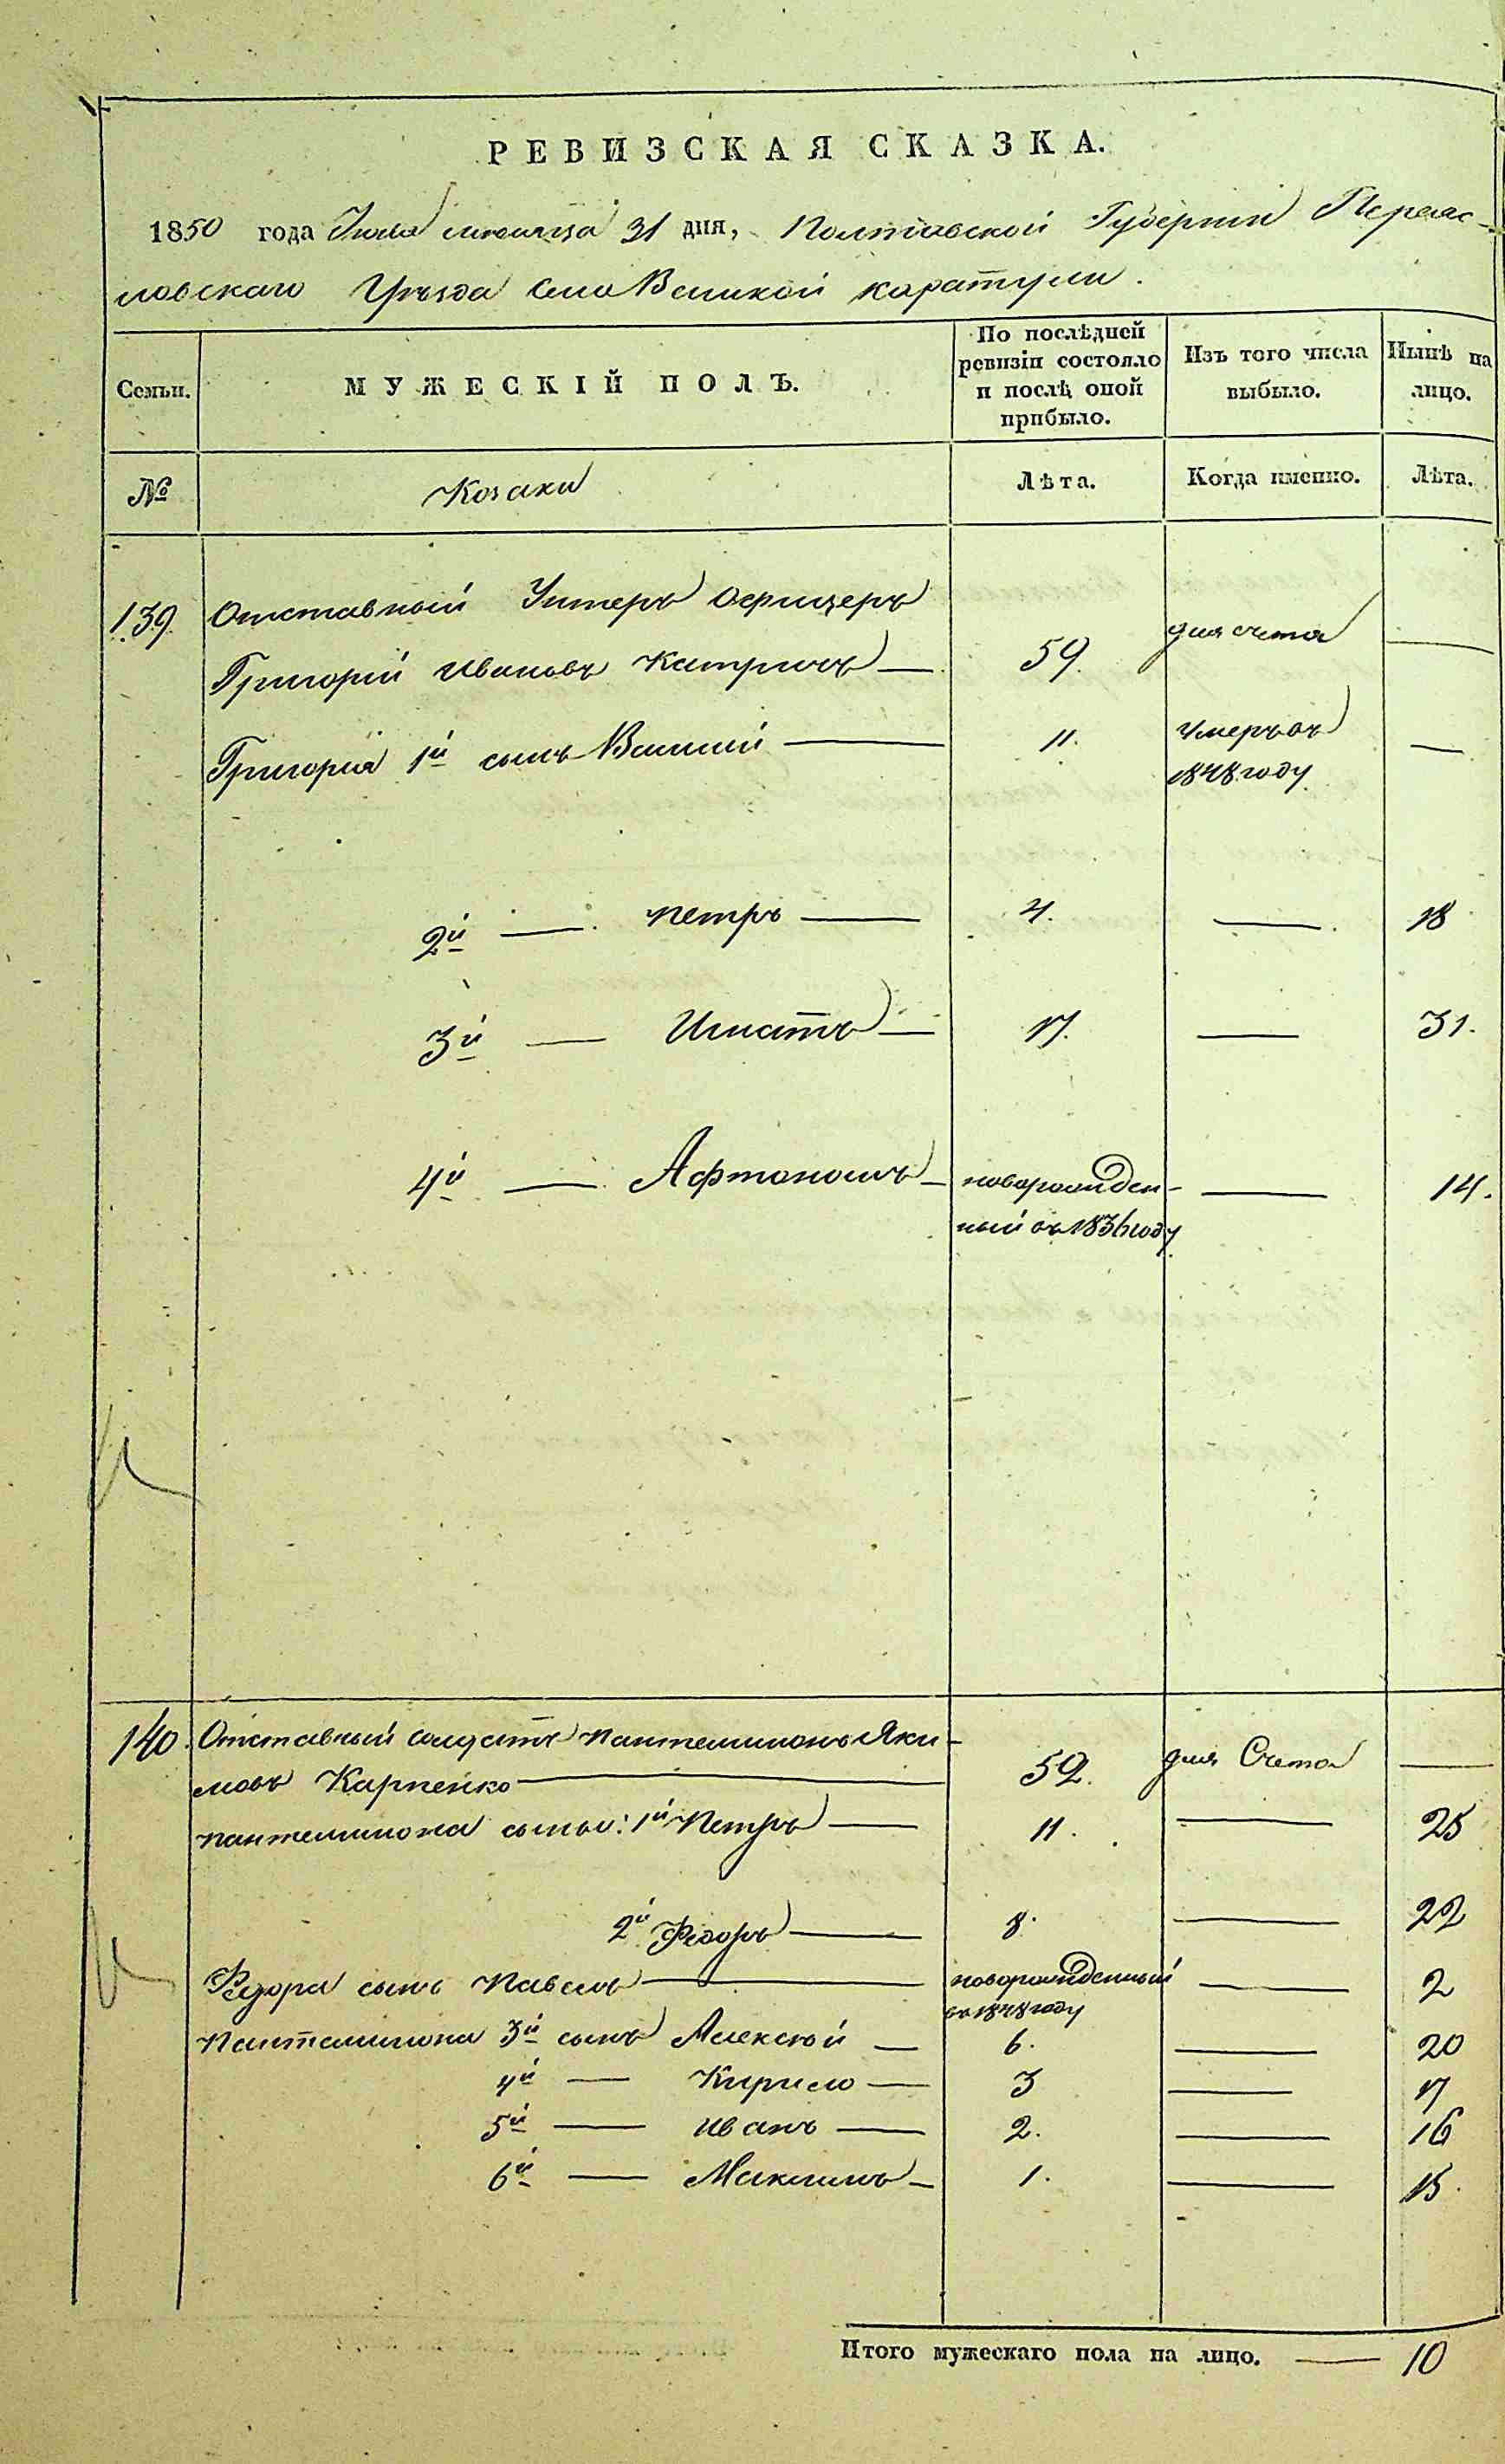 РЕВИЗСКАЯ СКАЗКА.
1850 года Июля месяца 31 дня, Полтавской Губернии Переяс-
ловскаго Уѣзда Села Великой каратули.
Семьи. МУЖЕСКІЙ ПОЛЪ. По послѣдней ревизіи состояло и послѣ оной прибыло. Изъ того числа выбыло. Нынѣ на лицо.
№ Козаки Лѣта. Когда именно. Лѣта.
139. Отставный Унтеръ офицеръ
Григорій Ивановъ Катричъ — 59. для счета —
Григорія 1й сынъ Василій — 11. умеръ въ 1848 году —
2й — петръ — 4. — 18
3й — Игнатъ — 17. — 31.
4й — Афтономъ — новорожден-
ный въ 1836 году — 14.
140. Отставный солдатъ пантелимонъ Яки-
мовъ Карпенко — 52. для Счета —
пантелимона сыны: 1й Петръ — 11. — 25
2й Федоръ — 8. — 22
Федора сынъ Павелъ — новорожденный въ 1848 году — 2
Пантелимона 3й сынъ Алексѣй — 6. — 20
4й — Кирило — 3 — 17
5й — Иванъ — 2. — 16
6й — Максимъ — 1. — 15.
Итого мужескаго пола на лицо. — 10